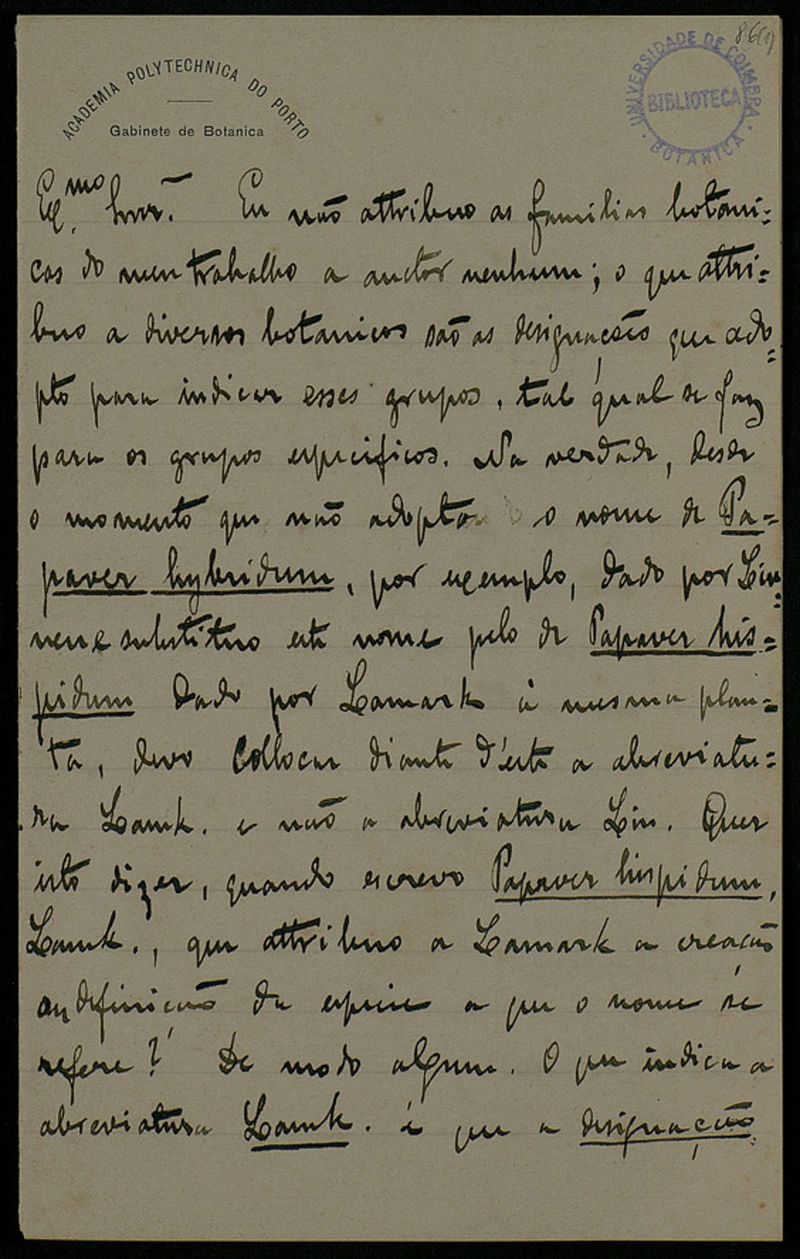 ACADEMIA POLYTECHNICA DO PORTO
Gabinete de Botanica
UNIVERSIDADE DE COIMBRA
BIBLIOTECA
BOTANICA
Ex.mo Snr. Eu não attribuo as familias botani-
cas do meu trabalho a auctor nenhum; o que attri-
buo a diversos botanicos são as designações que ado-
pto para indicar esses grupos, tal qual se faz
para os grupos especificos. Na verdade, desde
o momento que não adopto o nome de Pa-
paver hybridum, por exemplo, dado por Lin-
neu e substituo este nome pelo de Papaver his-
pidum dado por Lamark á mesma plan-
ta, devo collocar diante d'este a abreviatu-
ra Lamk. e não a abreviatura Lin. Quer
isto dizer, quando escrevo Papaver hispidum,
Lamk., que attribuo a Lamark a creação
ou definição da especie a que o nome se
refere? De modo algum. O que indica a
abreviatura Lamk. é que a designação